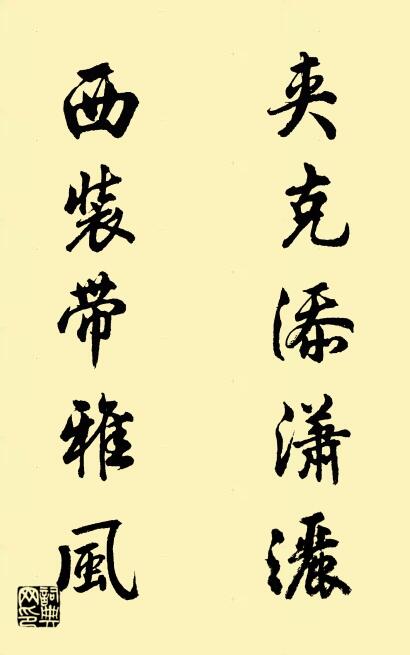 夹克添潇灑
西装带雅風
詞典网印